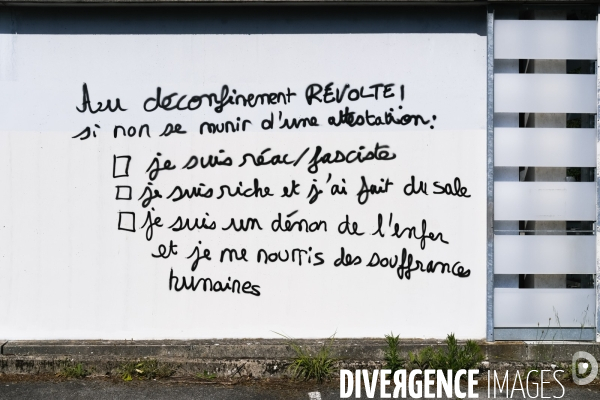 Au déconfinement RÉVOLTE!
si non se munir d'une attestation:
je suis réac/fasciste
je suis riche et j'ai fait du sale
je suis un démon de l'enfer
et je me nourris des souffrances
humaines
DIVERGENCE IMAGES